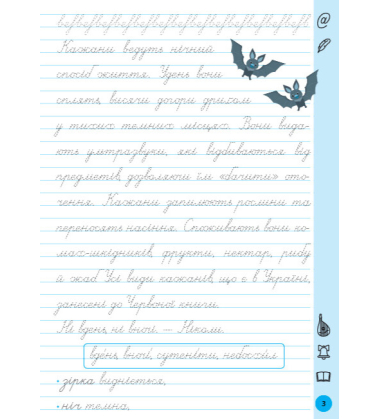 Кажани ведуть нічний
спосіб життя. Удень вони
сплять, висячи догори дригом
у тихих темних місцях. Вони вида-
ють ультразвуки, які відбиваються від
предметів, дозволяючи їм «бачити» ото-
чення. Кажани запилюють рослини та
переносять насіння. Споживають вони ко-
мах-шкідників, фрукти, нектар, рибу
й жаб. Усі види кажанів, що є в Україні,
занесені до Червоної книги.
Ні вдень, ні вночі. — Ніколи.
вде́нь, вночі, сутеніти, небосхил
• зірка виднієтьс��,
• ніч темна,
3